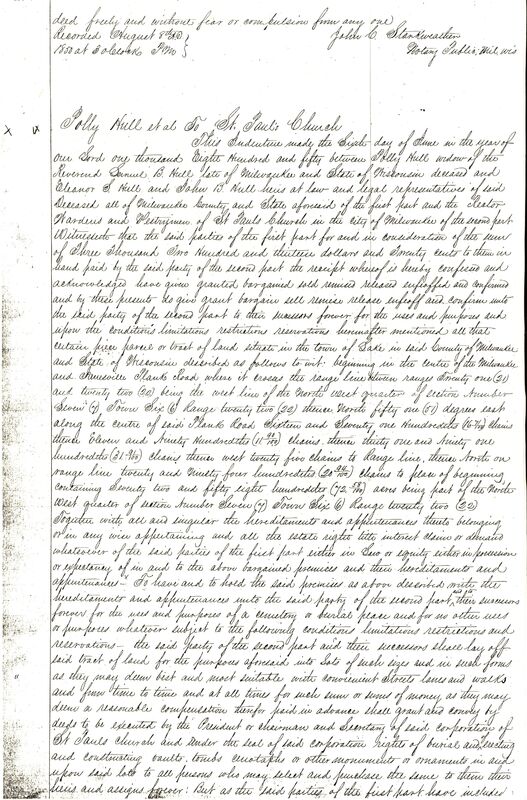 deed freely and without fear or compulsion from any one
Recorded August 8th AD.
1850 at 5 oClock P.M.
John C Starkweather
Notary Public, Mil. Wis
Polly Hull et al To St. Paul's Church
x
This Indenture made the Sixth day of June in the year of
our Lord one thousand Eight Hundred and fifty between Polly Hull widow of the
Reverend Lemuel B. Hull late of Milwaukee and State of Wisconsin deceased and
Eleanor S Hull and John B Hull heirs at law and legal representatives of said
Deceased all of Milwaukee County and State aforesaid of the first part and the Rector
Wardens and Vestrymen of St Pauls Church in the City of Milwaukee of the second part
Witnesseth that the said parties of the first part for and in consideration of the sum
of Three Thousand Two Hundred and thirteen dollars and Twenty cents to them in
hand paid by the said party of the second part the receipt whereof is hereby confessed and
acknowledged have given granted bargained sold remised released enfeoffed and confirmed
and by these presents do give grant bargain sell remise release enfeoff and confirm unto
the said party of the second part to their successors forever for the uses and purposes and
upon the conditions limitations restrictions reservations hereinafter mentioned all that
certain piece parcel or tract of land situate in the town of Lake in said County of Milwaukee
and State of Wisconsin described as follows to wit: beginning in the centre of the Milwaukee
and Janesville Plank Road where it crosses the range line between ranges Twenty one (21)
and twenty two (22) being the west line of the North West quarter of section Number
Seven (7) Town Six (6) Range twenty two (22) thence North fifty one (51) degrees east
along the centre of said Plank Road Sixteen and Seventy one Hundredths chains
thence Eleven and Ninety Hundredths chains, thence thirty one and Ninety one
hundredths chains thence west twenty five chains to Range line, thence North on
range line twenty and Ninety four hundredths chains to place of beginning
containing Seventy two and fifty eight hundredths acres being part of the North
West quarter of section Number Seven (7) Town Six (6) Range twenty two (22)
Together with all and singular the hereditaments and appurtenances thereto belonging
or in any wise appertaining and all the estate right title interest claim or demand
whatsoever of the said parties of the first part either in Law or equity either in possession
or expectancy of in and to the above bargained premises and their hereditaments and
appurtenances - To have and to hold the said premises as above described with the
hereditaments and appurtenances unto the said party of the second part, and to their successors
forever for the uses and purposes of a cemetery or burial place and for no other uses
or purposes whatever subject to the following conditions limitations restrictions and
reservations - the said party of the second part and their successors shall lay off
said tract of land for the purposes aforesaid into Lots of such size and in such forms
as they may deem best and most suitable with convenient Streets lanes and walks
and from time to time and at all times for such sum or sums of money as they may
deem a reasonable compensation therefor paid in advance shall grant and convey by
deeds to be executed by the President or chairman and Secretary of said corporation of
St Pauls Church and under the seal of said corporation rights of burial and erecting
and constructing vaults tombs cenotaphs or other monuments or ornaments in and
upon said lots to all persons who may select and purchase the same to them their
heirs and assigns forever: But as the said parties of the first part have included